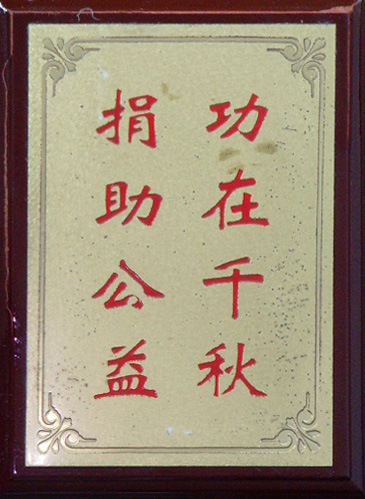 功在千秋
捐助公益